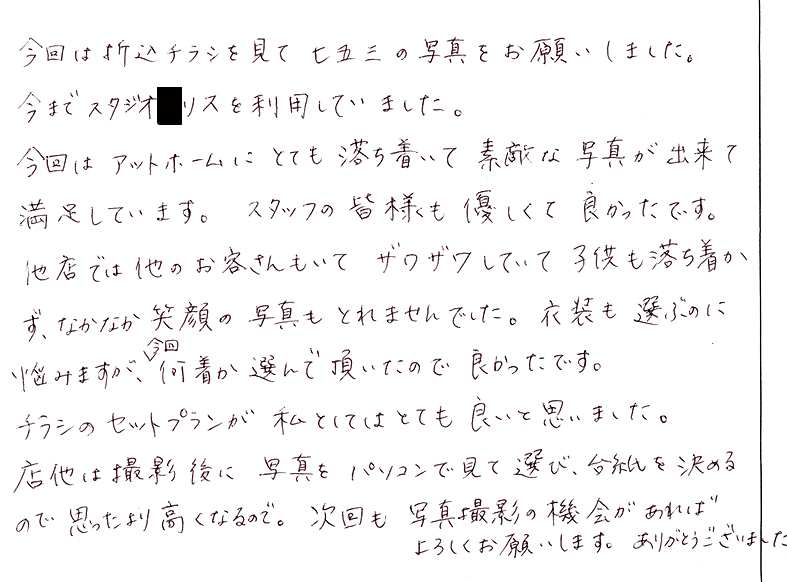 今回は折込チラシを見て 七五三の写真をお願いしました。
今までスタジオ リスを利用していました。
今回は アットホームに とても 落ち着いて 素敵な 写真が 出来て
満足しています。 スタッフの 皆様も 優しくて 良かったです。
他店では 他の お客さんもいて ザワザワしていて 子供も落ち着か
ず、なかなか 笑顔の 写真も とれませんでした。 衣装も 選ぶのに
悩みますが、今回何着か 選んで 頂いたので 良かったです。
チラシの セットプランが 私としてはとても 良いと思いました。
店他は 撮影後に 写真を パソコンで見て選び、台紙を決める
ので 思ったより 高くなるので。 次回も 写真撮影の機会があれば
よろしくお願いします。 ありがとうございました